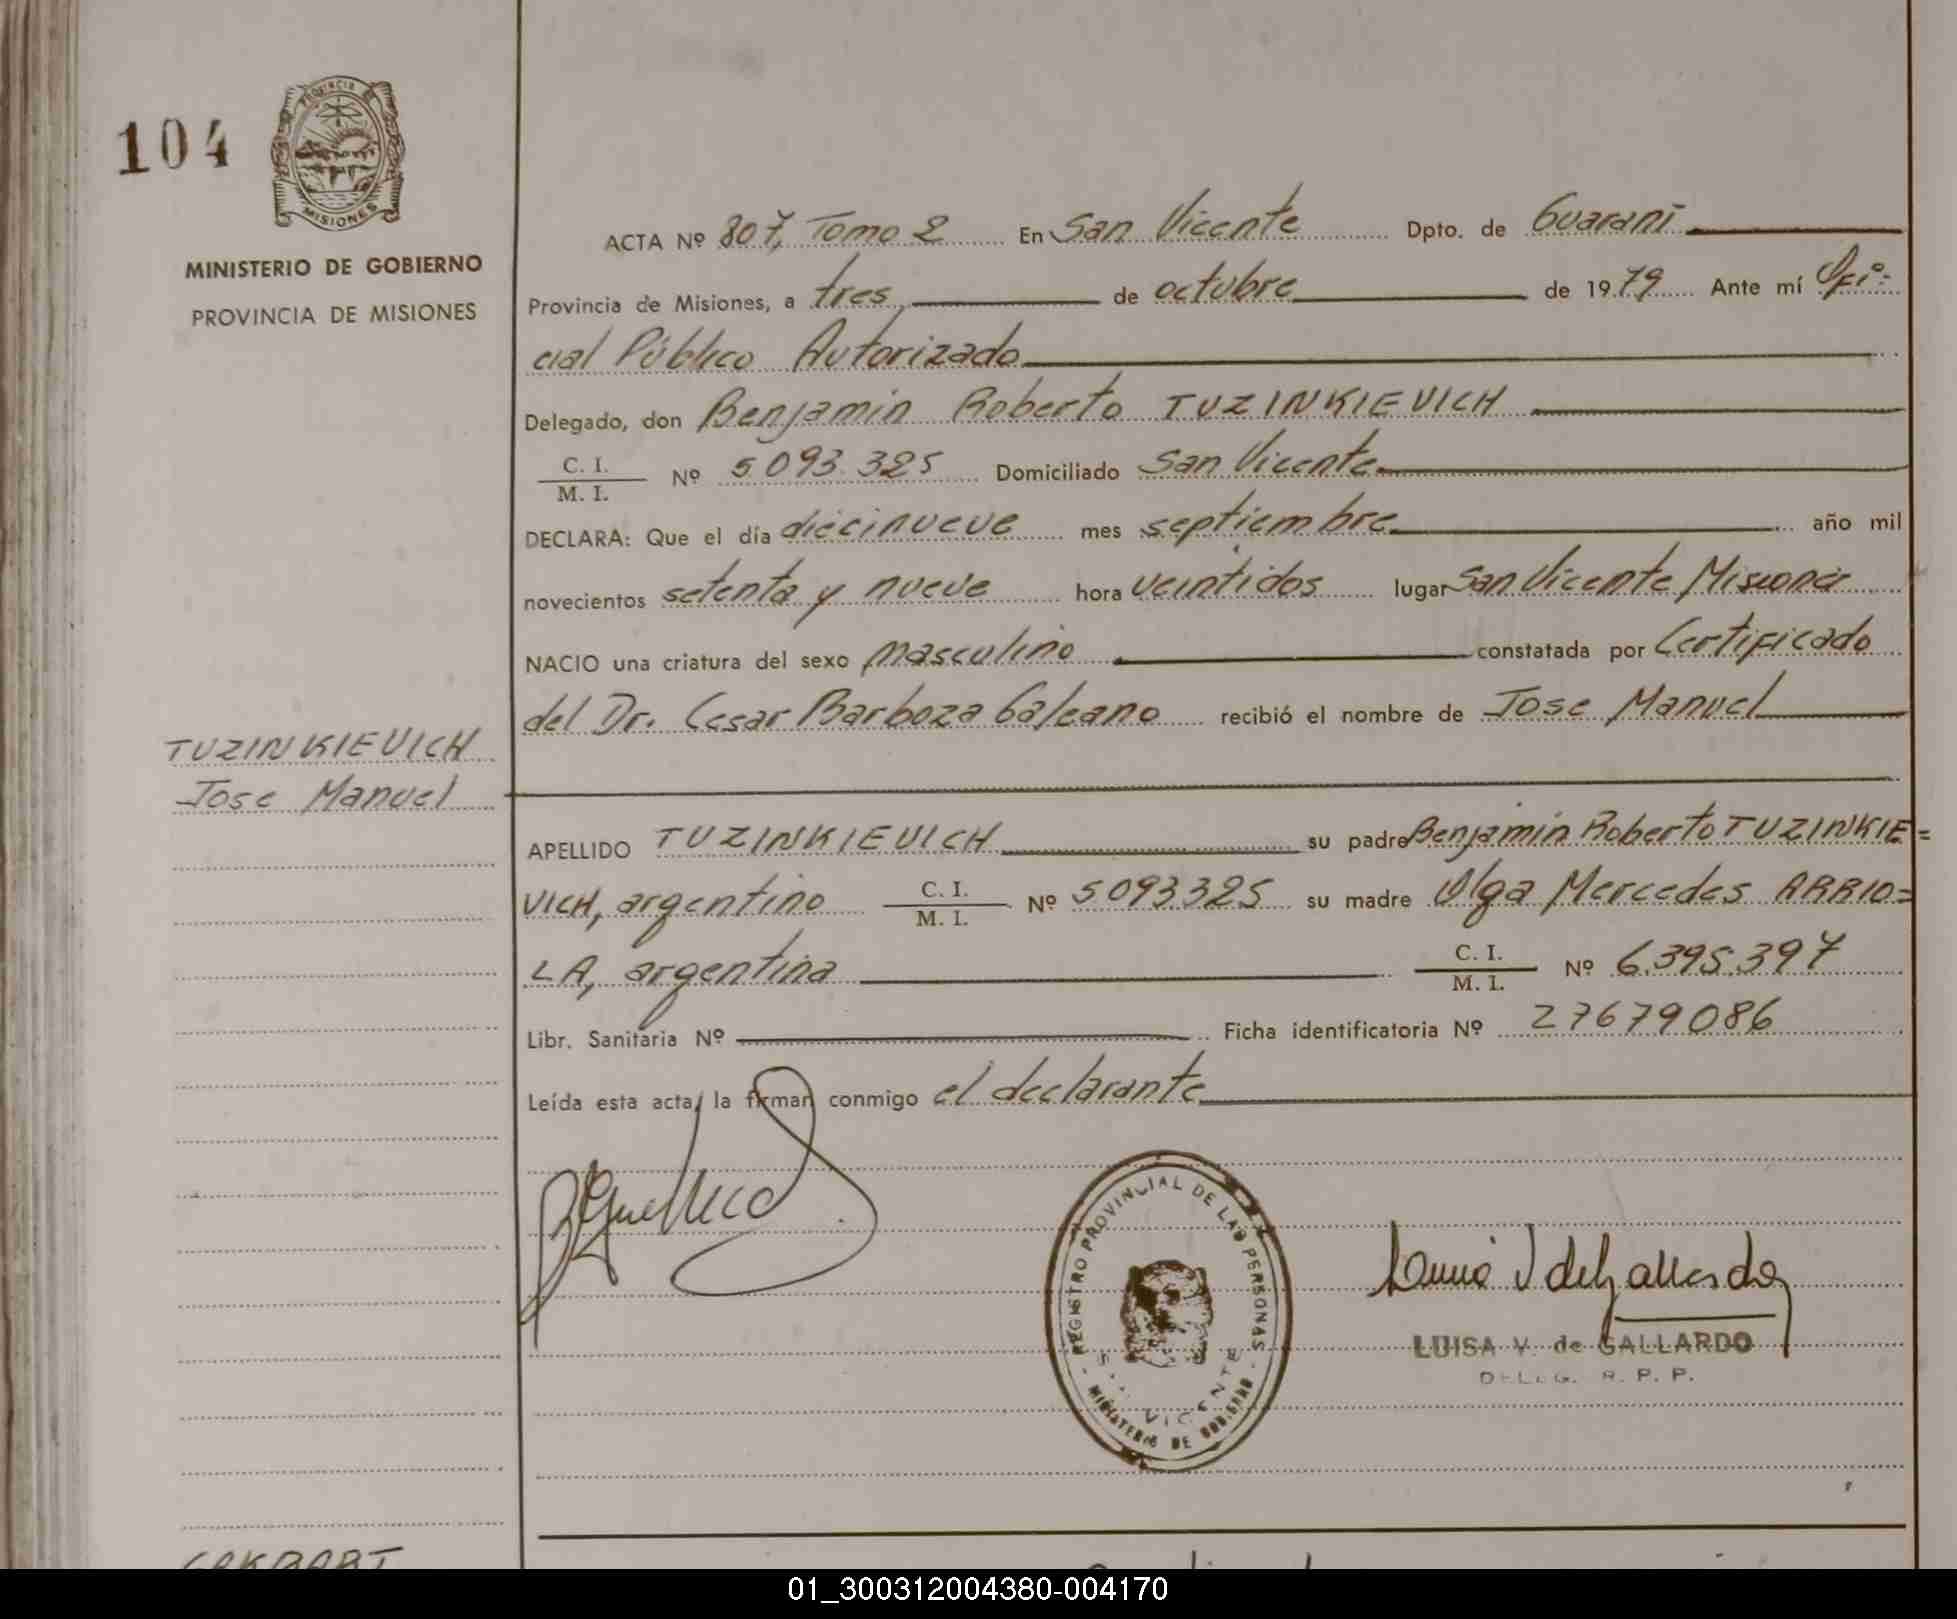 104
PROVINCIA DE
MISIONES
MINISTERIO DE GOBIERNO
PROVINCIA DE MISIONES
TUZINKIEVICH
Jose Manuel
ACTA Nº 807, Tomo 2 En San Vicente Dpto. de Guaraní
Provincia de Misiones, a tres de octubre de 1979 Ante mí Ofi=
cial Público Autorizado
Delegado, don Benjamin Roberto TUZINKIEVICH
C. I.
M. I. Nº 5.093.325 Domiciliado San Vicente
DECLARA: Que el día diecinueve mes septiembre año mil
novecientos setenta y nueve hora veintidos lugar San Vicente Misiones
NACIO una criatura del sexo masculino constatada por Certificado
del Dr. Cesar Barboza Galeano recibió el nombre de Jose Manuel
APELLIDO TUZINKIEVICH su padre Benjamin Roberto TUZINKIE=
VICH, argentino C. I. M. I. Nº 5093325 su madre Olga Mercedes ARRIO=
LA, argentina C. I. M. I. Nº 6.395.397
Libr. Sanitaria Nº Ficha identificatoria Nº 27679086
Leída esta acta, la firman conmigo el declarante
REGISTRO PROVINCIAL DE LAS PERSONAS
VICENTE
MINISTERIO DE GOBIERNO
LUISA V. de GALLARDO
DELEG. R. P. P.
01_300312004380-004170